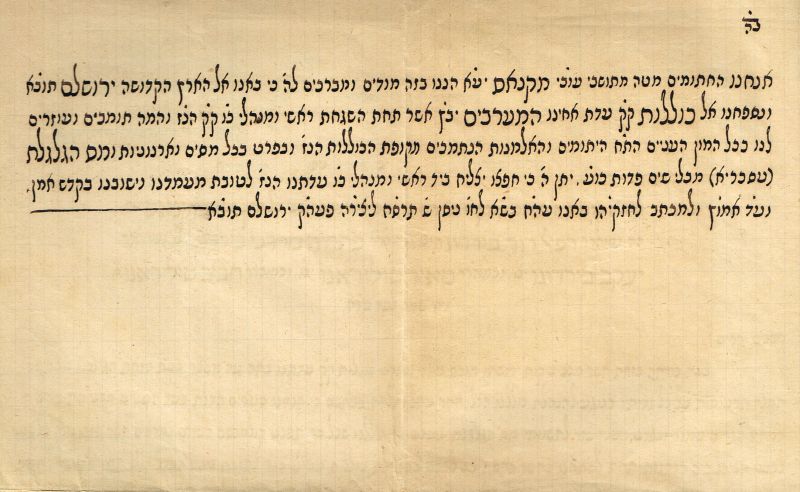 ב"ה
אנחנו החתומים מטה מתושבי עובי מקנאס יע"א הננו בזה מודים ומברכים לה' כי באנו אל הארץ הקדושה ירושלם תובא
ונספחנו אל כוללות ק"ק עדת אחינו המערבים יכ"ץ אשר תחת השגחת ראשי ומנהלי כו' ק"ק הנז' והמה תומכים ועוזרים
לנו ככל המון העניים הת"ח היתומים והאלמנות הנתמכים מקופת הכוללות הנז' ובפרט בכל מסים וארנוניות ומס הגלגלת
(עסכריא) מבלי שים פדות כוש'. יתן ה' כי חפצו יצליח ביד ראשי ומנהלי כו' עדתנו הנז' לטובת מעמדנו וישובנו בקדש אמן.
ועד אמוץ ולמכתב לחזק יהו באנו עה"ח בש"א לחו' ניסן ש' תרס"ח ליצירה פעה"ק ירושלם תובא